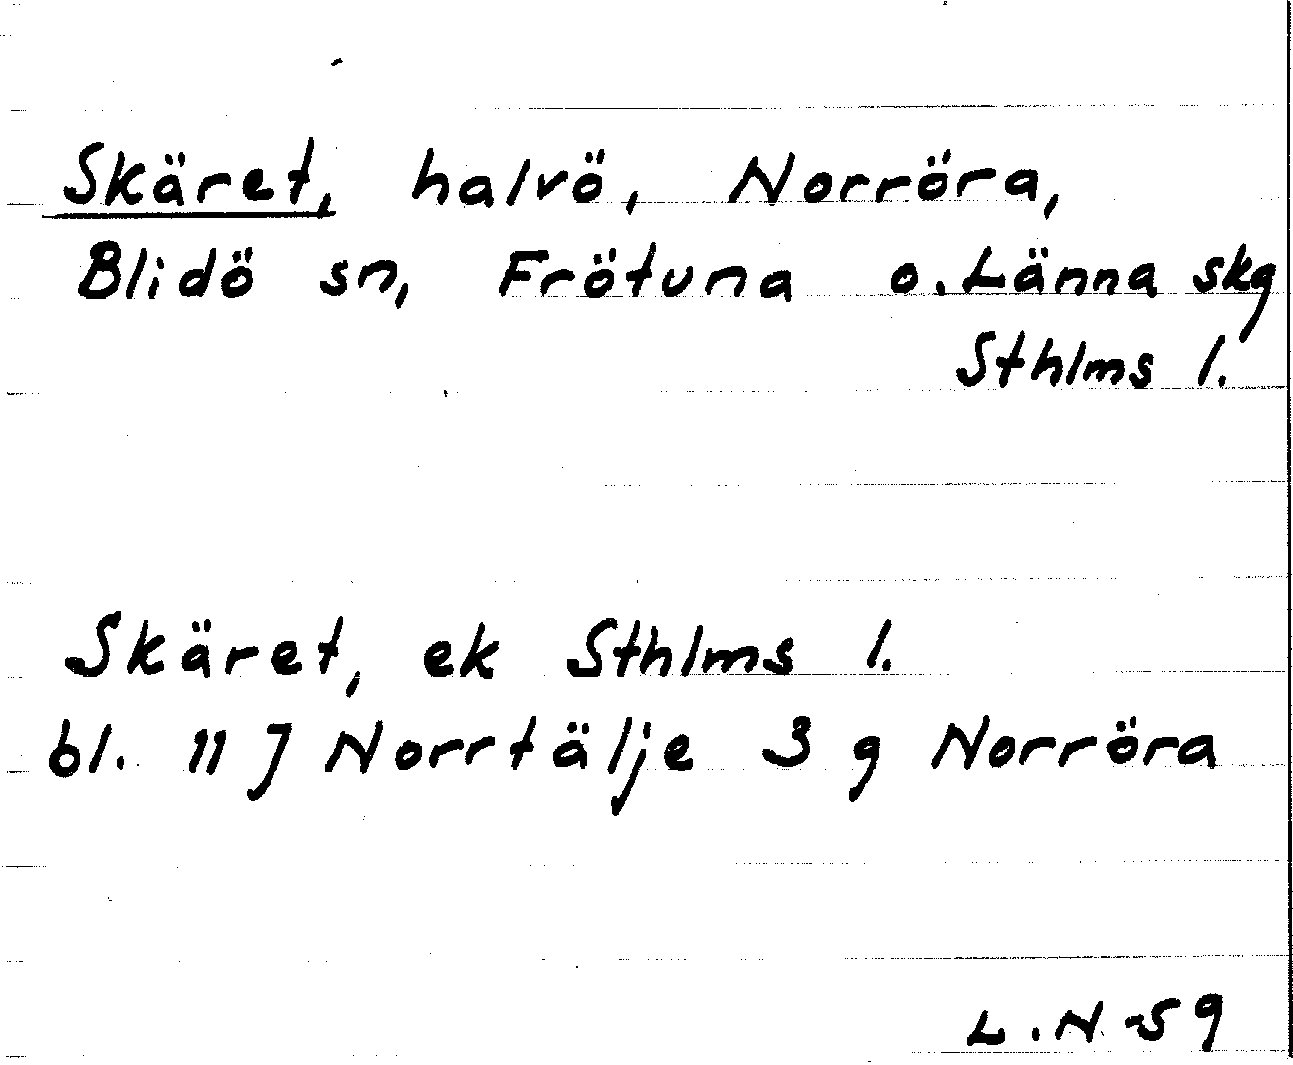 Skäret, halvö, Norröra,
Blidö sn, Frötuna o. Länna skg
Sthlms l.
Skäret, ek Sthlms l.
bl. 11 J Norrtälje 3 g Norröra
L.N-59